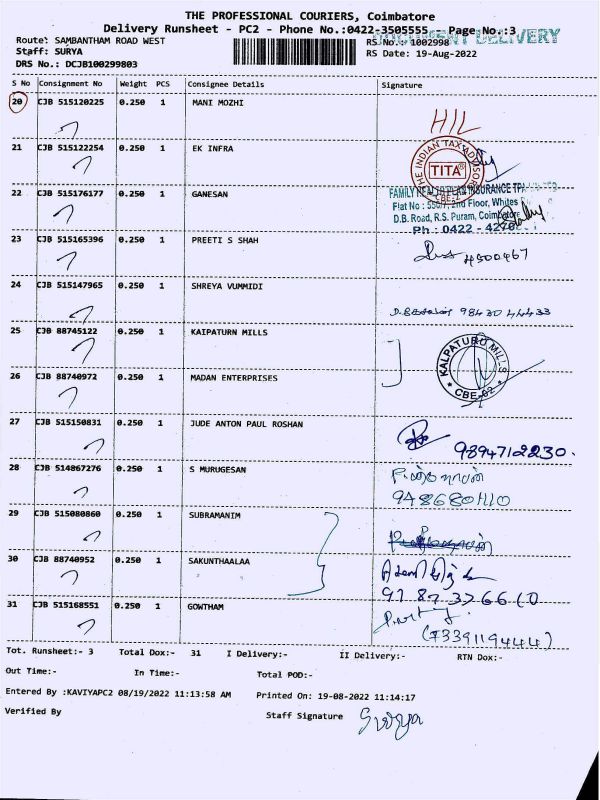 THE PROFESSIONAL COURIERS, Coimbatore
Delivery Runsheet - PC2 - Phone No.:0422-3505555 Page No.:3
DOCUMENT DELIVERY
Route: SAMBANTHAM ROAD WEST
RS No.: 1002998
Staff: SURYA
RS Date: 19-Aug-2022
DRS No.: DCJB100299803
S No Consignment No Weight PCS Consignee Details Signature
20 CJB 515120225 0.250 1 MANI MOZHI
HIL
21 CJB 515122254 0.250 1 EK INFRA
THE INDIAN TAX ADVISOR
TITA
CBE-2
22 CJB 515176177 0.250 1 GANESAN
FAMILY HEALTH PLAN INSURANCE TPA
Flat No : 2nd Floor, Whites
D.B. Road, R.S. Puram, Coimbatore
Ph : 0422 -
23 CJB 515165396 0.250 1 PREETI S SHAH
4500467
24 CJB 515147965 0.250 1 SHREYA VUMMIDI
98430 44433
25 CJB 88745122 0.250 1 KAIPATURN MILLS
KALPATURU MILLS
CBE-02
26 CJB 88740972 0.250 1 MADAN ENTERPRISES
27 CJB 515150831 0.250 1 JUDE ANTON PAUL ROSHAN
9894712230.
28 CJB 514867276 0.250 1 S MURUGESAN
9486804110
29 CJB 515080860 0.250 1 SUBRAMANIM
30 CJB 88740952 0.250 1 SAKUNTHAALAA
31 CJB 515168551 0.250 1 GOWTHAM
(7339119444)
Tot. Runsheet:- 3 Total Dox:- 31 I Delivery:- II Delivery:- RTN Dox:-
Out Time:- In Time:- Total POD:-
Entered By :KAVIYAPC2 08/19/2022 11:13:58 AM Printed On: 19-08-2022 11:14:17
Verified By Staff Signature Surya